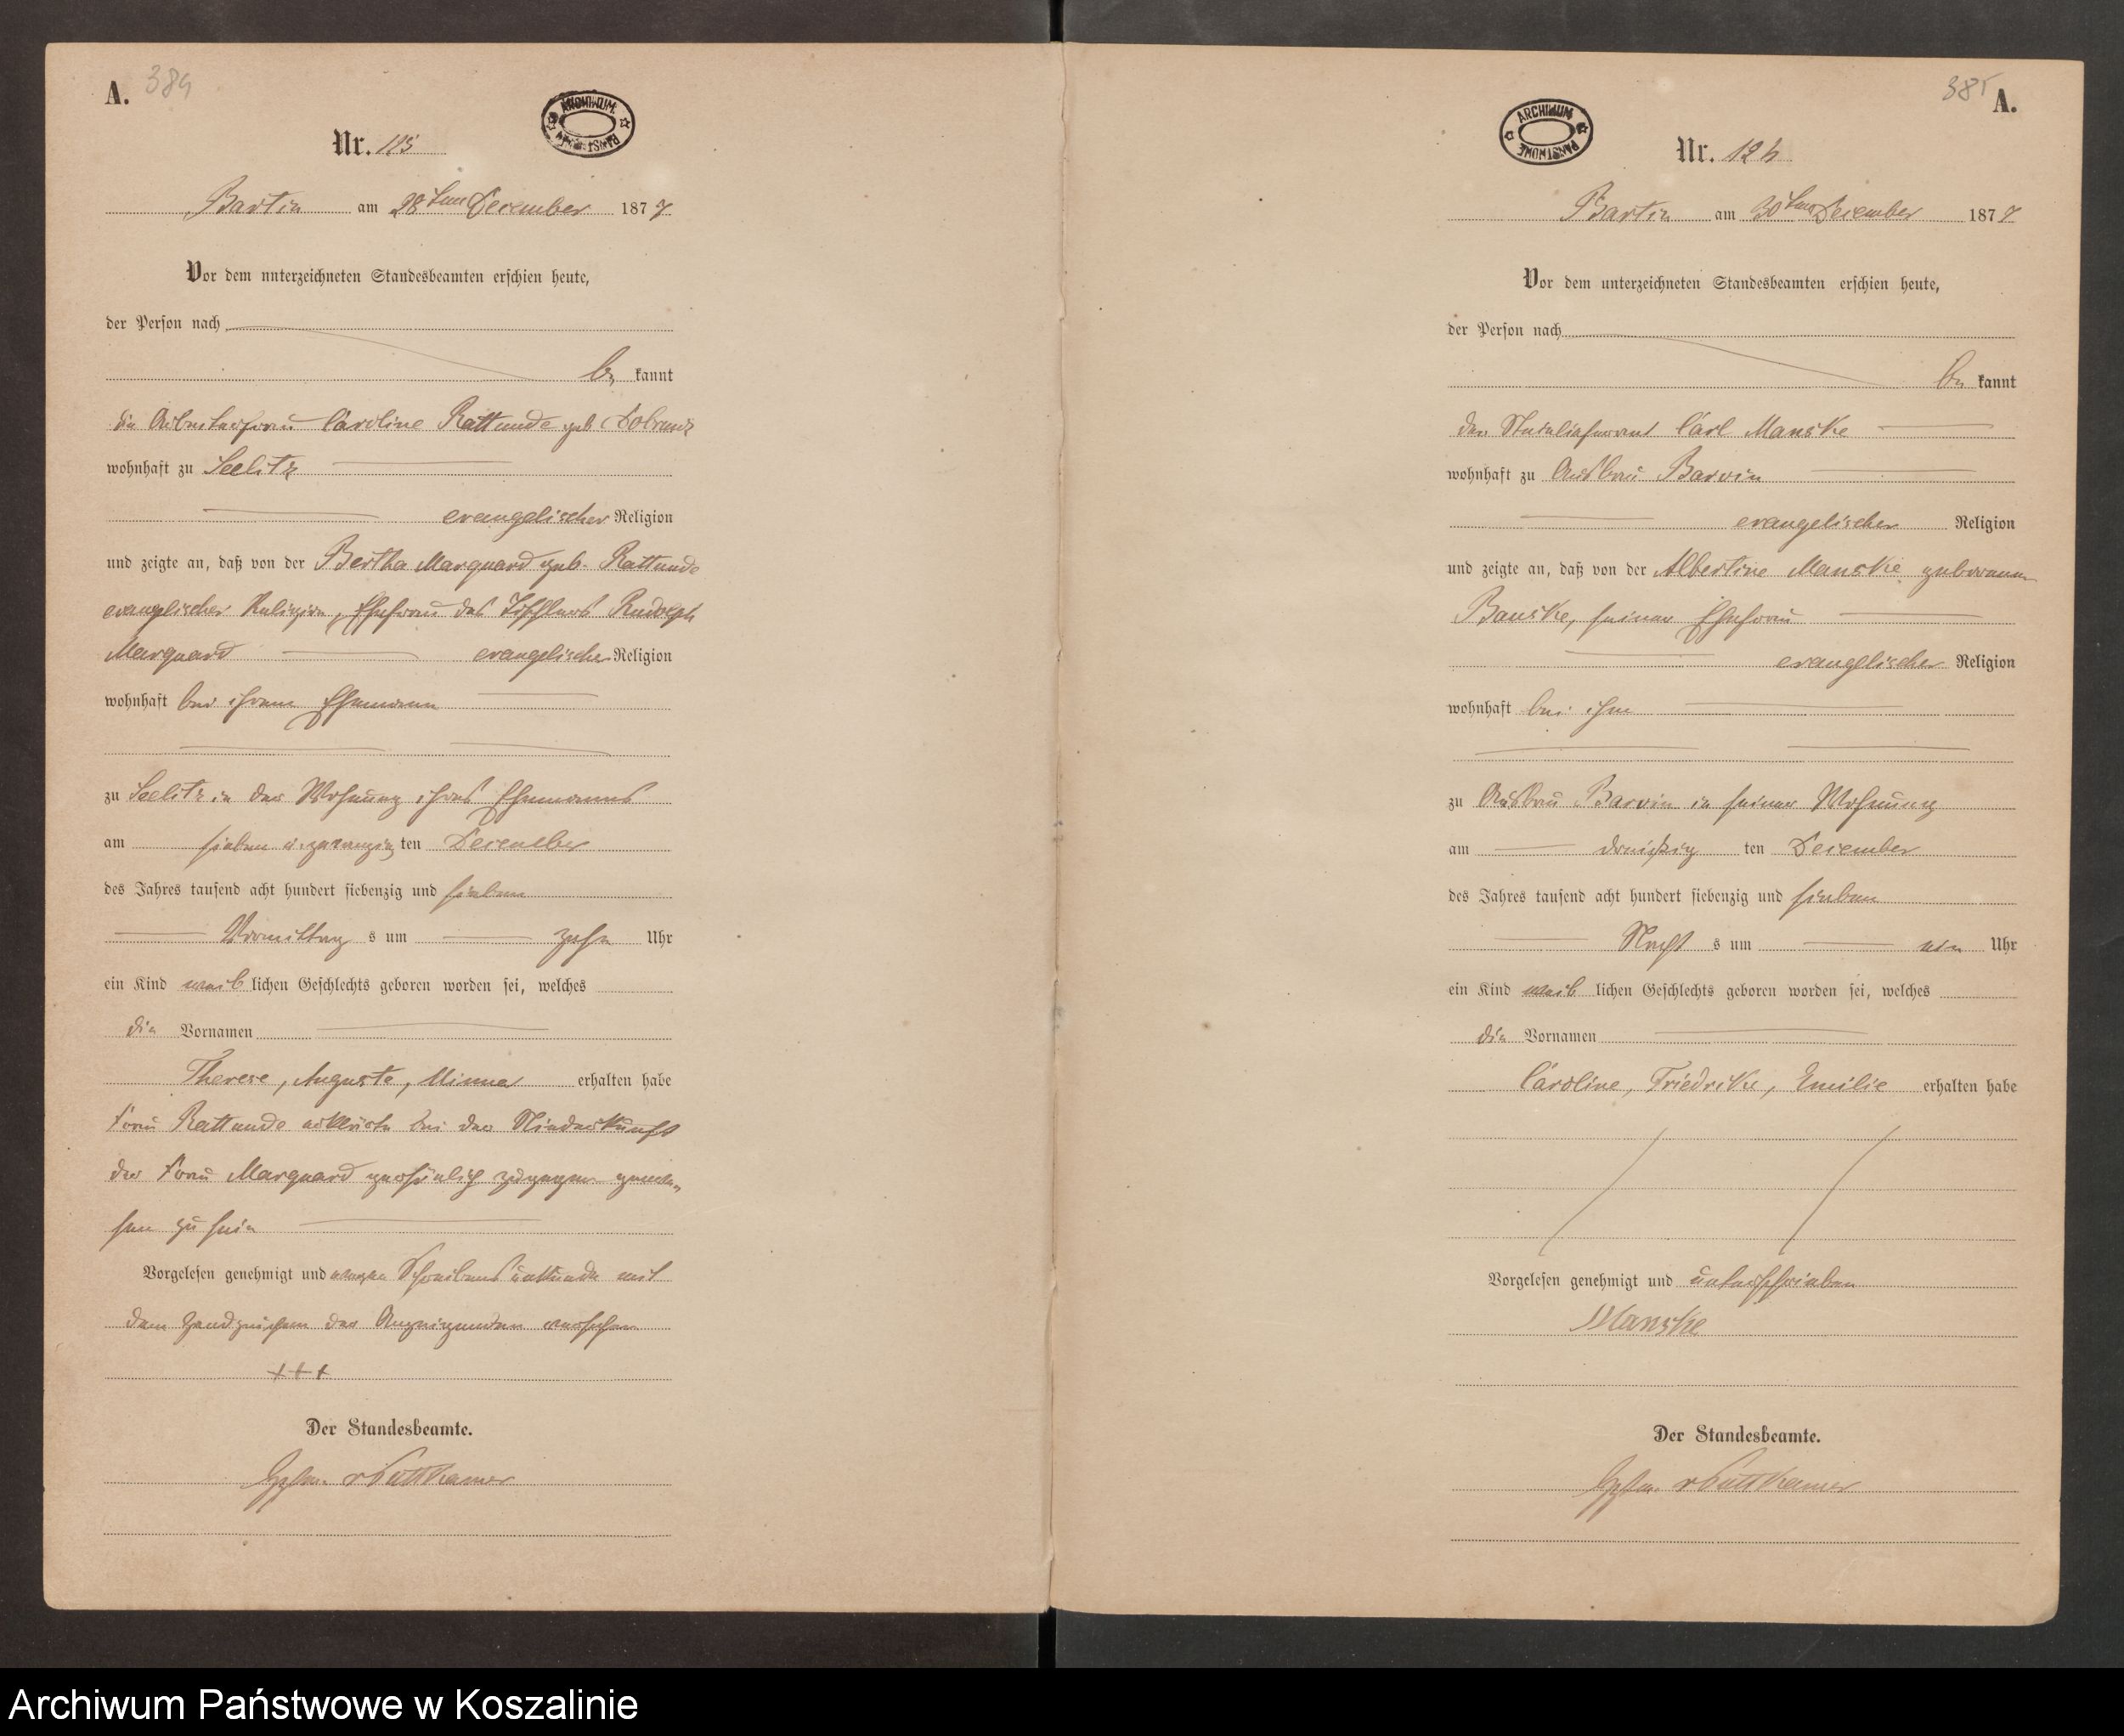 A. 384
ARCHIWUM PAŃSTWOWE
Nr. 115
Bartin am 28ten December 1877
Vor dem unterzeichneten Standesbeamten erschien heute,
der Person nach
be kannt
die Arbeiterfrau Caroline Rattunde geb.
wohnhaft zu Seelitz
evangelischer Religion
und zeigte an, daß von der Bertha Marquard geb. Rattunde
evangelischer Religion, Ehefrau des Rudolph
Marquard evangelischer Religion
wohnhaft bei ihrem Ehemann
zu Seelitz in der Wohnung ihres Ehemannes
am sieben u. zwanzig ten December
des Jahres tausend acht hundert siebenzig und sieben
Vormittag s um zehn Uhr
ein Kind weib lichen Geschlechts geboren worden sei, welches
die Vornamen
Therese, Auguste, Minna erhalten habe
Frau Rattunde erklärte bei der Niederkunft
der Frau Marquard persönlich zugegen gewe-
sen zu sein
Vorgelesen genehmigt und wegen Schreibens unkunde mit
dem Handzeichen der Anzeigenden versehen
+++
Der Standesbeamte.
v Puttkamer
385 A.
ARCHIWUM PAŃSTWOWE
Nr. 126
Bartin am 30ten December 1877
Vor dem unterzeichneten Standesbeamten erschien heute,
der Person nach
be kannt
der Carl Manske
wohnhaft zu Ausbau Barvin
evangelischer Religion
und zeigte an, daß von der Albertine Manske geborenen
Banske, seiner Ehefrau
evangelischer Religion
wohnhaft bei ihm
zu Ausbau Barvin in seiner Wohnung
am dreißig ten December
des Jahres tausend acht hundert siebenzig und sieben
Nacht s um ein Uhr
ein Kind weib lichen Geschlechts geboren worden sei, welches
die Vornamen
Caroline, Friedrike, Emilie erhalten habe
Vorgelesen genehmigt und unterschrieben
Manske
Der Standesbeamte.
v Puttkamer
Archiwum Państwowe w Koszalinie